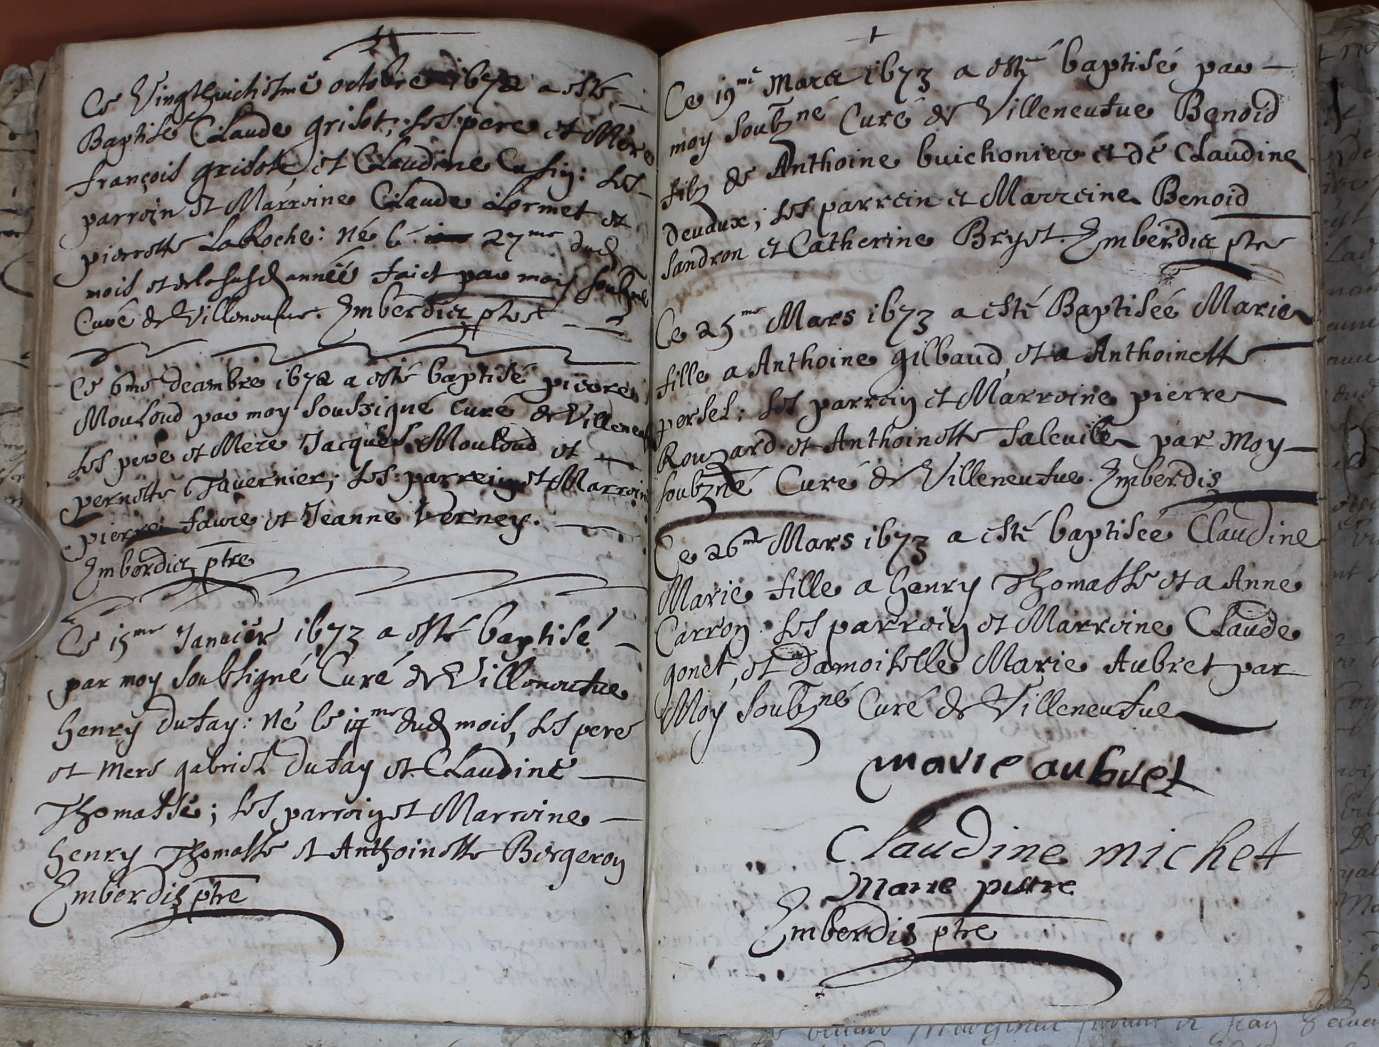 Ce Vingthuictiesme octobre 1672 a esté
Baptisé Claude grisot, Les pere et Mere
françois grisot et Claudine Les
parroin et Marroine Claude Lormet et
pierrotte LaRoche: Né le 27me dud
mois et année faict par moy soubzné
Curé de Villeneufve. Imberdiz ptre
Ce 6me decembre 1672 a esté baptisé pierre
Mouloud par moy soubzigné Curé de Villeneufve
Les pere et Mere Jacques Mouloud et
pernotte Tavernier; Les parrein et Marroine
pierre faure et Jeanne Verney.
Imberdiz ptre
Ce 15me Janvier 1673 a esté baptisé
par moy Soubsigné Curé de Villeneufve
henry dufay: Né le 14me dud mois, Les pere
et mere gabriel dufay et Claudine
Thomasse; Les parroin et Marroine
henry Thomasse et Anthoinette Bergeron
Imberdiz ptre
Ce 19me Mars 1673 a esté baptisé par
moy Soubzné Curé de Villeneufve Benoid
filz de Anthoine buichonier et de Claudine
Devaux; Les parrein et Marreine Benoid
Sandron et Catherine Bryet. Imberdiz ptre
Ce 25me Mars 1673 a esté Baptisée Marie
fille a Anthoine gilbaud et a Anthoinette
persel: Les parroin et Marroine pierre
Rouzard et Anthoinette Saleville par Moy
soubzné Curé de Villeneufve. Imberdiz
Ce 26me Mars 1673 a esté baptisée Claudine
Marie fille a henry Thomasse et a Anne
Carron Les parroin et Marroine Claude
gonet, et damoiselle Marie Aubret par
Moy Soubzné Curé de Villeneufve
marie aubret
Claudine michet
Marie pietre
Imberdiz ptre